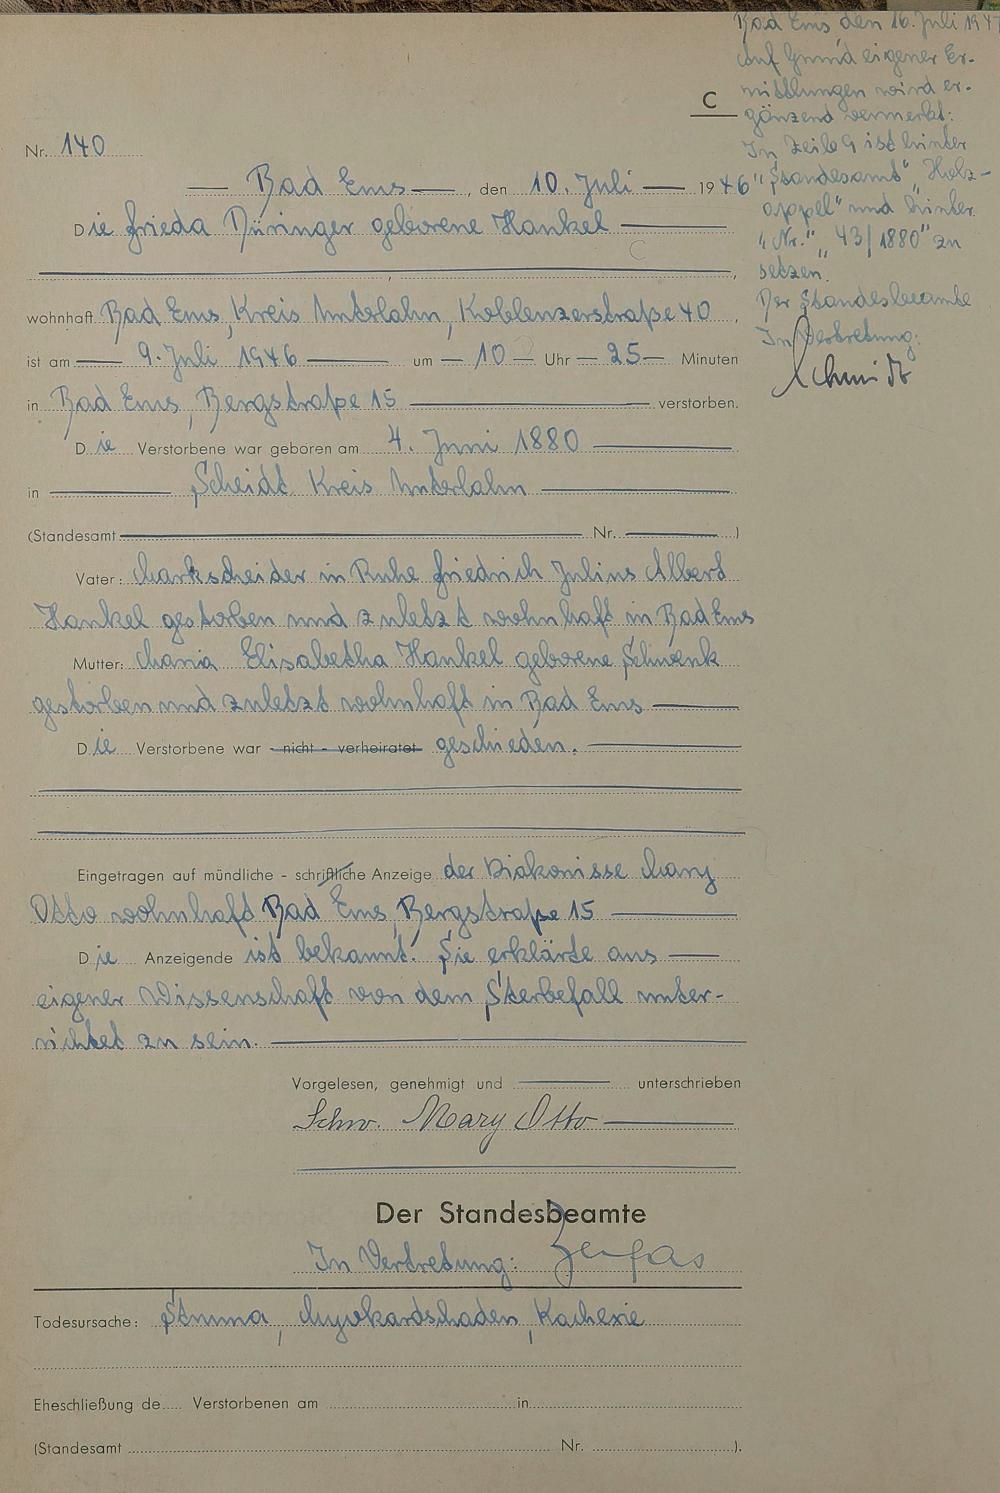 Bad Ems den 16. Juli 194
Auf Grund eigener Er-
mittlungen wird er-
gänzend vermerkt:
In Zeile 9 ist hinter
"Standesamt" "Holz-
appel" und hinter
"Nr." "43/1880" zu
setzen.
Der Standesbeamte
In Vertretung:
Schmidt
C
Nr. 140
— Bad Ems —, den 10. Juli — 1946
Die Frieda Düringer geborene Hankel —
wohnhaft Bad Ems, Kreis Unterlahn, Koblenzerstraße 40,
ist am — 9. Juli 1946 — um — 10 — Uhr — 25 — Minuten
in Bad Ems, Bergstraße 15 — verstorben.
Die Verstorbene war geboren am 4. Juni 1880 —
in — Scheidt Kreis Unterlahn —
(Standesamt — Nr. — )
Vater: Markscheider in Ruhe Friedrich Julius Albert
Hankel gestorben und zuletzt wohnhaft in Bad Ems
Mutter: Maria Elisabetha Hankel geborene Schwenk
gestorben und zuletzt wohnhaft in Bad Ems —
Die Verstorbene war nicht - verheiratet geschieden. —
Eingetragen auf mündliche - schriftliche Anzeige der Diakonisse Mary
Otto wohnhaft Bad Ems, Bergstraße 15 —
Die Anzeigende ist bekannt. Sie erklärte aus —
eigener Wissenschaft von dem Sterbefall unter-
richtet zu sein. —
Vorgelesen, genehmigt und — unterschrieben
Schw. Mary Otto —
Der Standesbeamte
In Vertretung:
Todesursache: Struma, Myokardschaden, Kachexie
Eheschließung de..... Verstorbenen am ..... in .....
(Standesamt ..... Nr. ..... ).